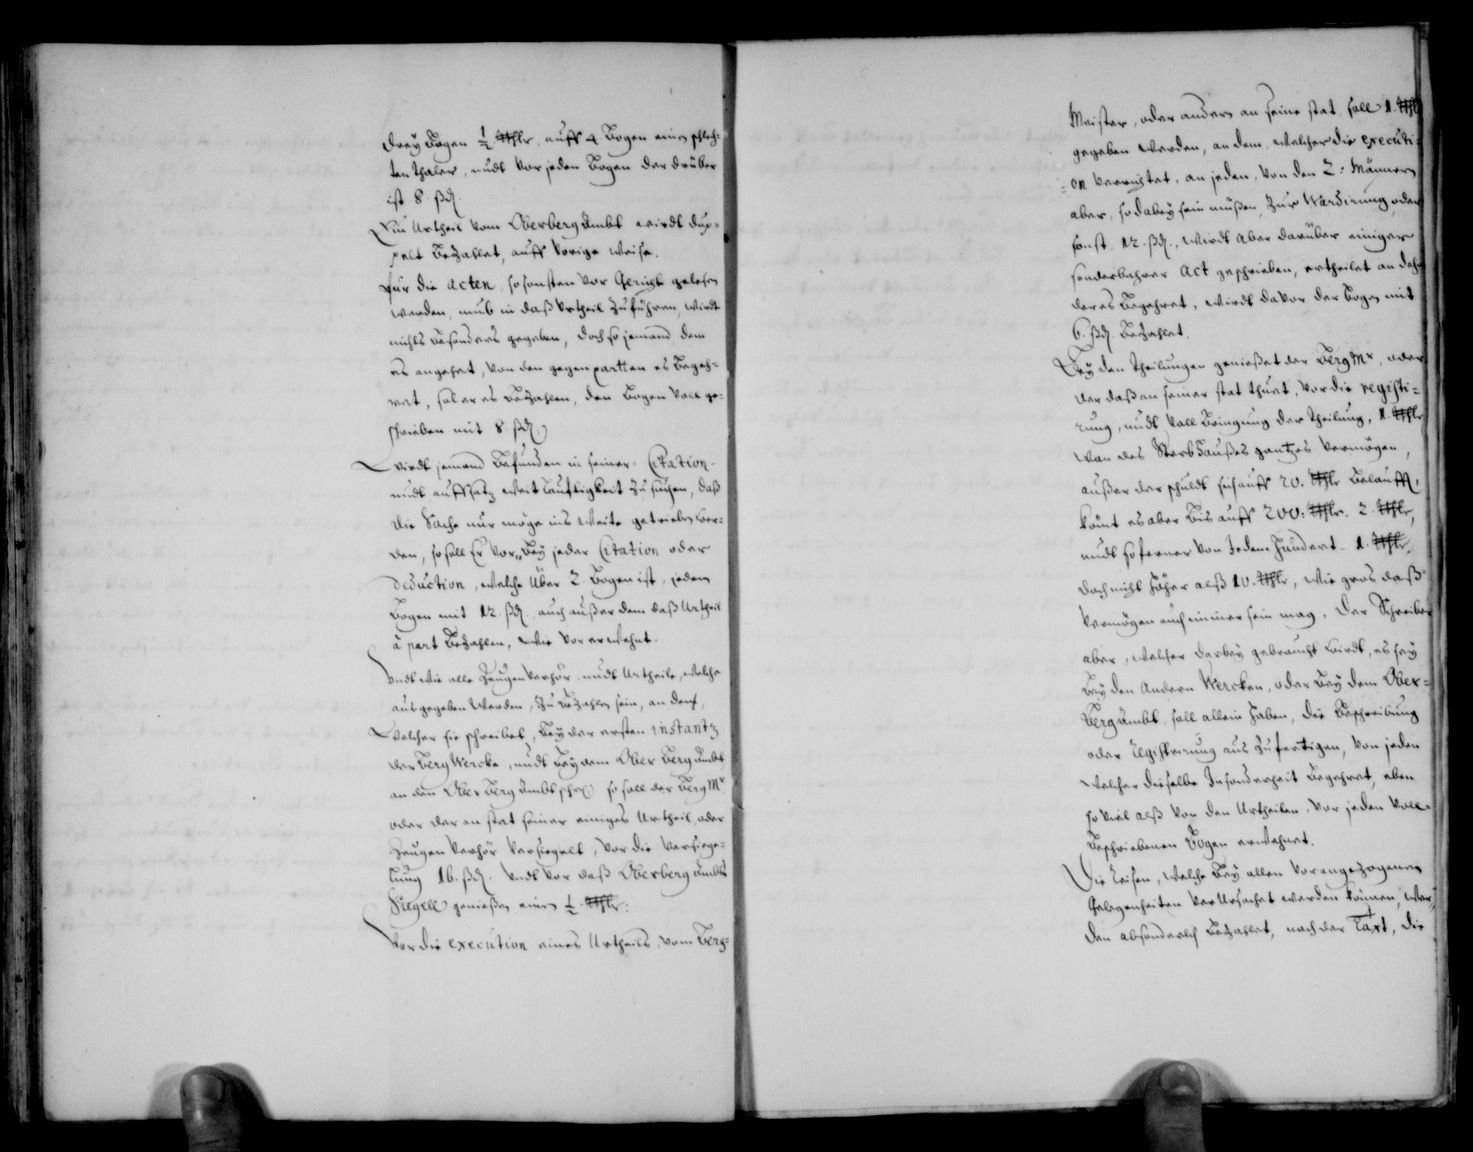 dreÿ Bogen ½ Rthlr. auff 4 Bogen einen schlech-
ten thaler, undt vor jeden Bogen der drüber
ist 8 ßd.
Ein Urtheil vom Oberbergambt wirdt dup-
pelt bezahlet, auff vorige weise.
für die acten, so sonsten vor Gericht gelesen
werden, umb in daß Urtheil zuführen, wirdt
nichts besonders gegeben, doch so jemand dem
es angehet, von den gegen partten es begeh-
ret, sol er es bezahlen, den Bogen voll ge-
schrieben mit 8 ßd.
wirdt jemand befunden in seiner Citation
undt auffsatz weitläuftigkeit zu suchen, daß
die Sache nur möge ins weite getrieben wer-
den, so soll Er vor beÿ jeder Citation oder
deduction, welche über 2. Bogen ist, jeden
Bogen mit 12. ßd. auch außer dem daß Urtheil
à part bezahlen, wie vor erwehnt.
Undt wie alle Zeugen verhör, undt Urtheile, welche
aus gegeben werden, zu bezahlen sein, an dem,
welcher sie schreibet, beÿ der ersten instantz
der Bergwercke, undt beÿ dem Ober Berg ambt
an den Ober Berg ambtschr. so soll der Berg Mr
oder der an stat seiner einiges Urtheil, oder
Zeugen verhör versiegelt, vor die versiege-
lung 16. ßd. undt vor daß Oberberg ambts
Siegell genießen einen ½ Rthlr.
Vor die execution eines Urtheils, vom Berg-
Meister, oder andern an seine stat, soll 1. Rthlr
gegeben werden, an dem, welcher die executi-
on verrichtet, an jeden, von den 2: Männern
aber, so dabeÿ sein müßen, zur Wardirung oder
sonst, 12. ßd., wirdt aber darüber einiger
sonderbahrer Act geschrieben, ertheilet an deh
der es begehret, wirdt davor der bogen mit
6. ßd. bezahlet.
Beÿ den theilungen genießet der Berg Mr, oder
der daß an seiner stat thuet, vor die registi-
rung, undt voll bringung der theilung, 1. Rthlr
wan des Sterbhaußes gantzes vermögen,
außer der schuldt sich auff 20. Rthlr belaufft,
kömt es aber bis auff 200. Rthlr. 2 Rthlr,
undt so ferner von Jedem Hundert 1. Rthlr.
doch nicht höher alß 10. Rthlr, wie gros daß
vermögen auch immer sein mag. Der Schreiber
aber, welcher darbeÿ gebraucht wirdt, es seÿ
beÿ den andern Wercken, oder beÿ dem Ober-
Bergambt, soll allein haben, die beschreibung
oder registrirung aus zufertigen, von jeden
welcher dieselbe Insonderheit begehret, eben
so viel alß von den Urtheilen, vor jeden voll
beschriebenen Bogen erwehnet.
Die reisen, welche beÿ allen vorangezogenen
Gelegenheiten verursachet werden können, wer-
den absonderlich bezahlet, nach der Taxt, die